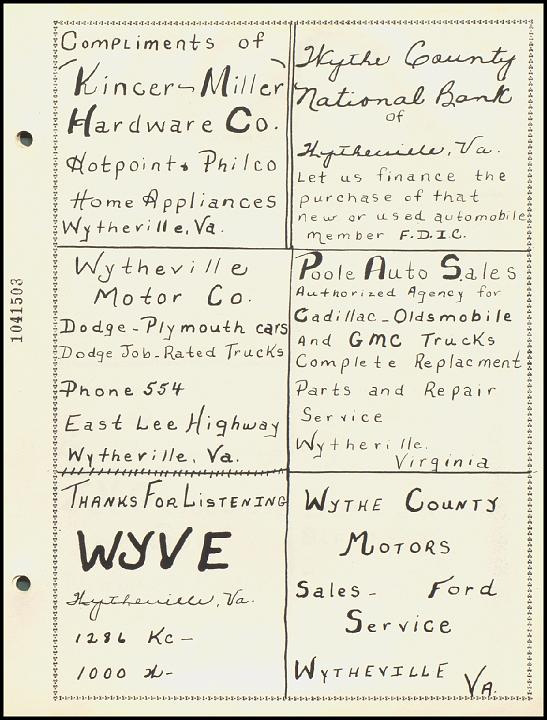 Compliments of
Kincer-Miller
Hardware Co.
Hotpoint & Philco
Home Appliances
Wytheville, Va.
Wythe County
National Bank
of
Wytheville, Va.
Let us finance the
purchase of that
new or used automobile
Member F.D.I.C.
Wytheville
Motor Co.
Dodge-Plymouth cars
Dodge Job-Rated Trucks
Phone 554
East Lee Highway
Wytheville, Va.
Poole Auto Sales
Authorized Agency for
Cadillac-Oldsmobile
And GMC Trucks
Complete Replacment
Parts and Repair
Service
Wytheville,
Virginia
THANKS FOR LISTENING
WYVE
Wytheville, Va.
1286 Kc-
1000
WYTHE COUNTY
MOTORS
Sales- Ford
Service
WYTHEVILLE VA.
1041503